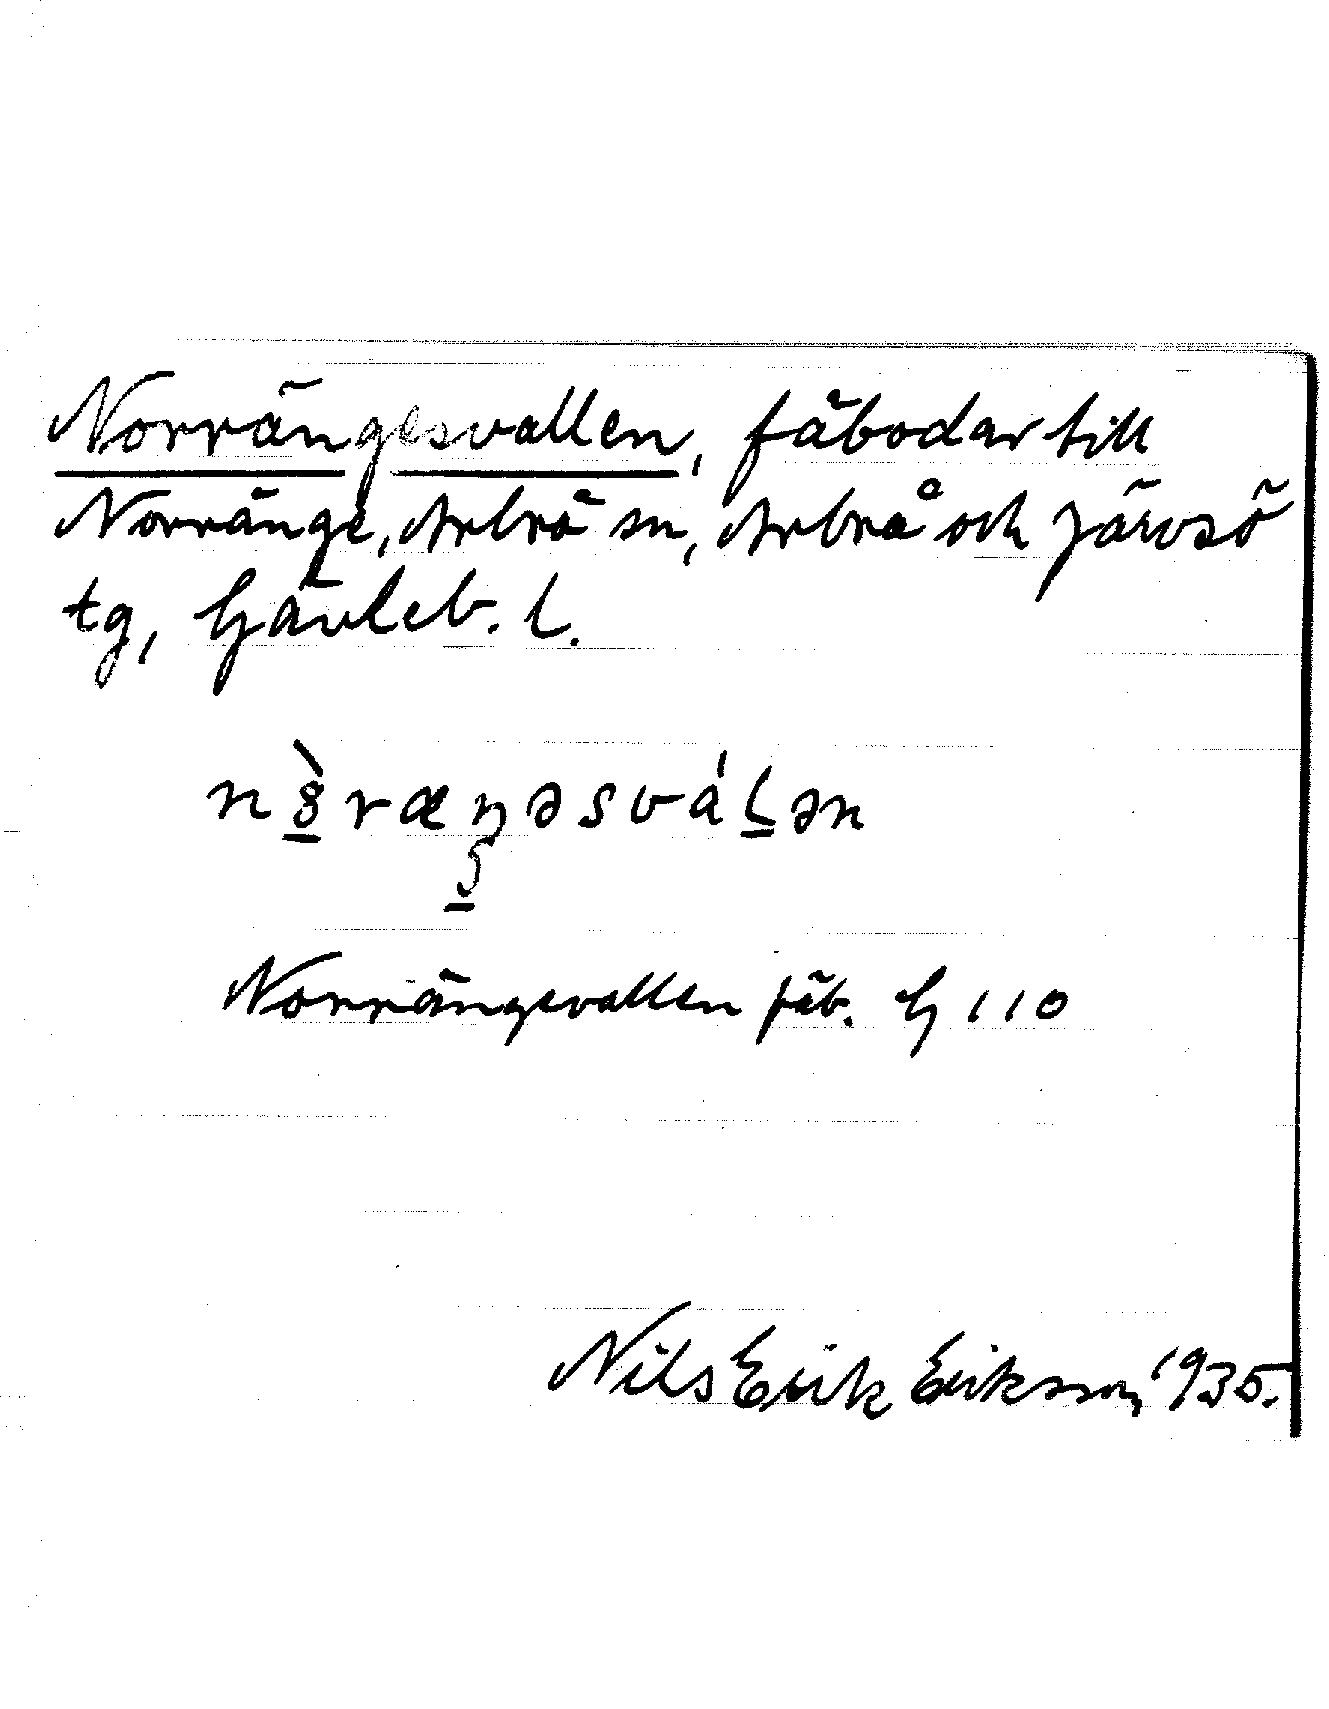 Norrängesvallen, fäbodar till
Norränge, Arbrå sn, Arbrå och Järvsö
tg, Gävleb. l.
Norrängsvallen fäb. G 110
Nils Erik Eriksson, 1935.